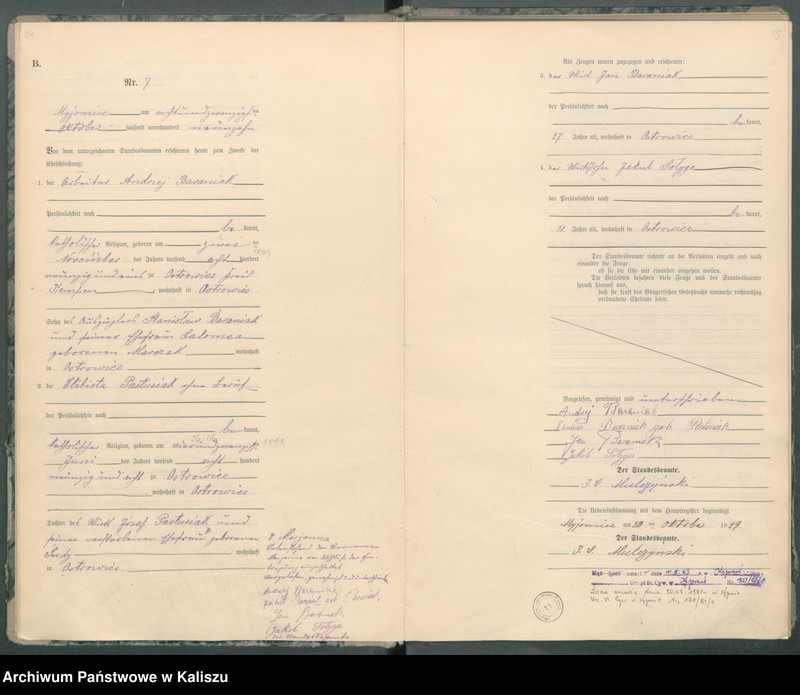 B.
Nr. 7
Myjomice am achtundzwanzigsten
Oktober tausend neunhundert neunzehn
Vor dem unterzeichneten Standesbeamten erschienen heute zum Zwecke der
Eheschließung:
1. der Arbeiter Andrzej Baraniak
Persönlichkeit nach
be kannt,
katholischer Religion, geboren am zwei ten
November des Jahres tausend acht hundert
neunzig und eins in Ostrowiec Kreis
Kempen, wohnhaft in Ostrowiec
Sohn des Auszüglers Stanisław Baraniak
und seiner Ehefrau Salomea
geborenen Marczak wohnhaft
in Ostrowiec
2. die Elżbieta Pastusiak ohne Beruf
der Persönlichkeit nach
be kannt,
katholischer Religion, geboren am vierundzwanzigsten
Juni des Jahres tausend acht hundert
neunzig und acht in Ostrowiec
, wohnhaft in Ostrowiec
Tochter des Wirt Józef Pastusiak und
seiner verstorbenen Ehefrau geborenen
wohnhaft
in Ostrowiec
Marjanna
Vorstehend der Vornamen
Marjanna am Schlusse der Ein-
tragung eingeschaltet
Vorgelesen, genehmigt und
Als Zeugen waren zugezogen und erschienen:
3. der Wirt Jan Baraniak
der Persönlichkeit nach
be kannt,
27 Jahre alt, wohnhaft in Ostrowiec
4. der Wirtssohn Jakub Sołyga
der Persönlichkeit nach
be kannt,
21 Jahre alt, wohnhaft in Ostrowiec
Der Standesbeamte richtete an die Verlobten einzeln und nach
einander die Frage:
ob sie die Ehe mit einander eingehen wollen.
Die Verlobten bejahten diese Frage und der Standesbeamte
sprach hierauf aus,
daß sie kraft des Bürgerlichen Gesetzbuchs nunmehr rechtmäßig
verbundene Eheleute seien.
Vorgelesen, genehmigt und unterschrieben
Andrzej Baraniak
Baraniak geb. Pastusiak
Jan Baraniak
Jakob Sołyga
Der Standesbeamte.
I. V. Mielczyński
Die Uebereinstimmung mit dem Hauptregister beglaubigt
Myjomice am 28 ten Oktober 1919
Der Standesbeamte.
I. V. Mielczyński
Archiwum Państwowe w Kaliszu